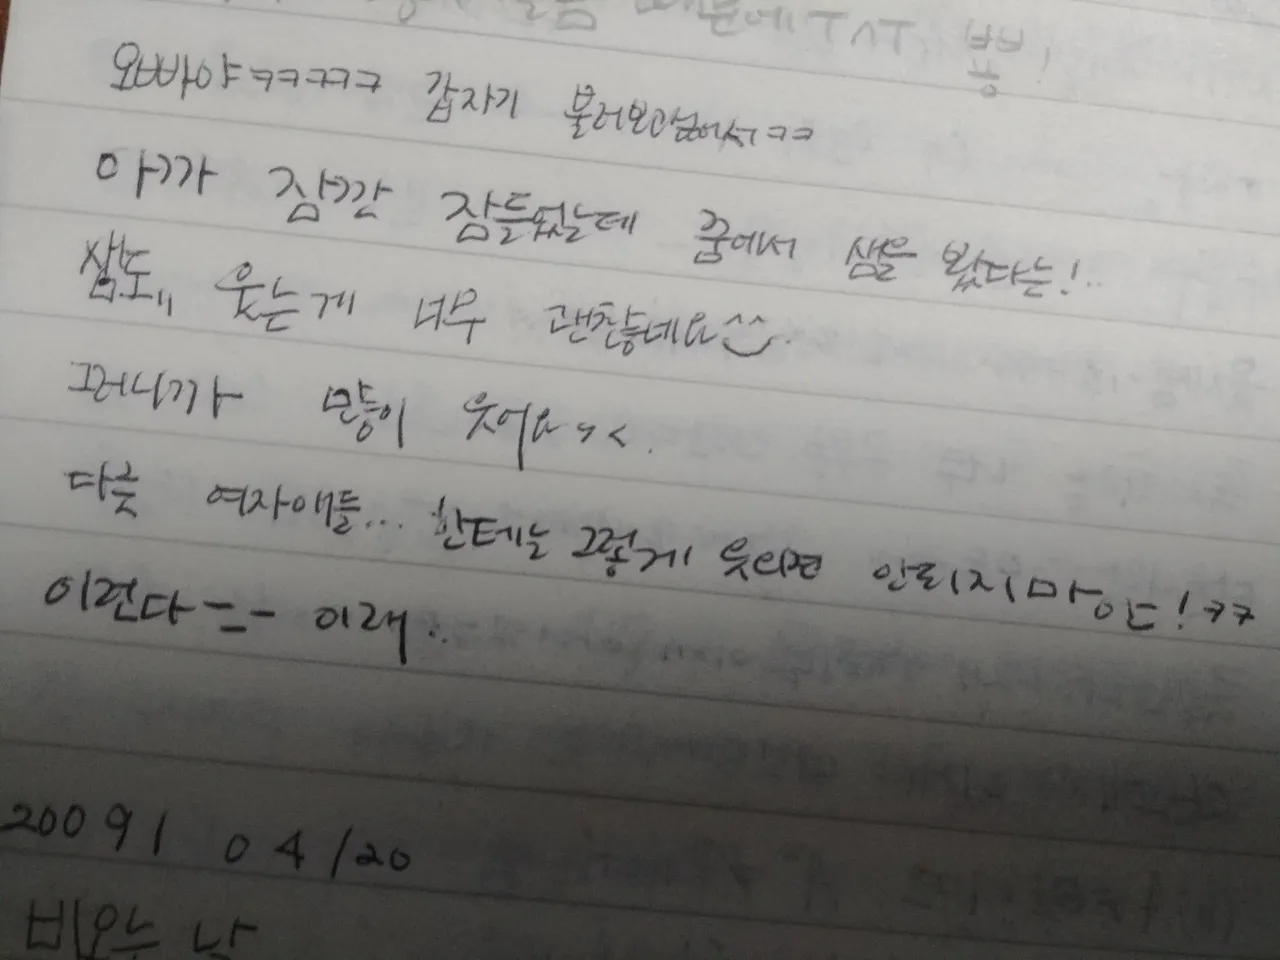 때문에 ㅜㅅㅜ, 쁑!
오빠야ㅋㅋㅋㅋㅋ 갑자기 불러보고싶어서ㅋㅋ
아까 잠깐 잠들었는데 꿈에서 샘을 봤다는!..
샘도,, 웃는게 너무 괜찮네요^^
그러니까 많이 웃어요><.
다른 여자애들... 한테는 그렇게 웃으면 안되지마안!ㅋㅋ
이런다 =_= 이래..
2009/ 04/20
비오는 날